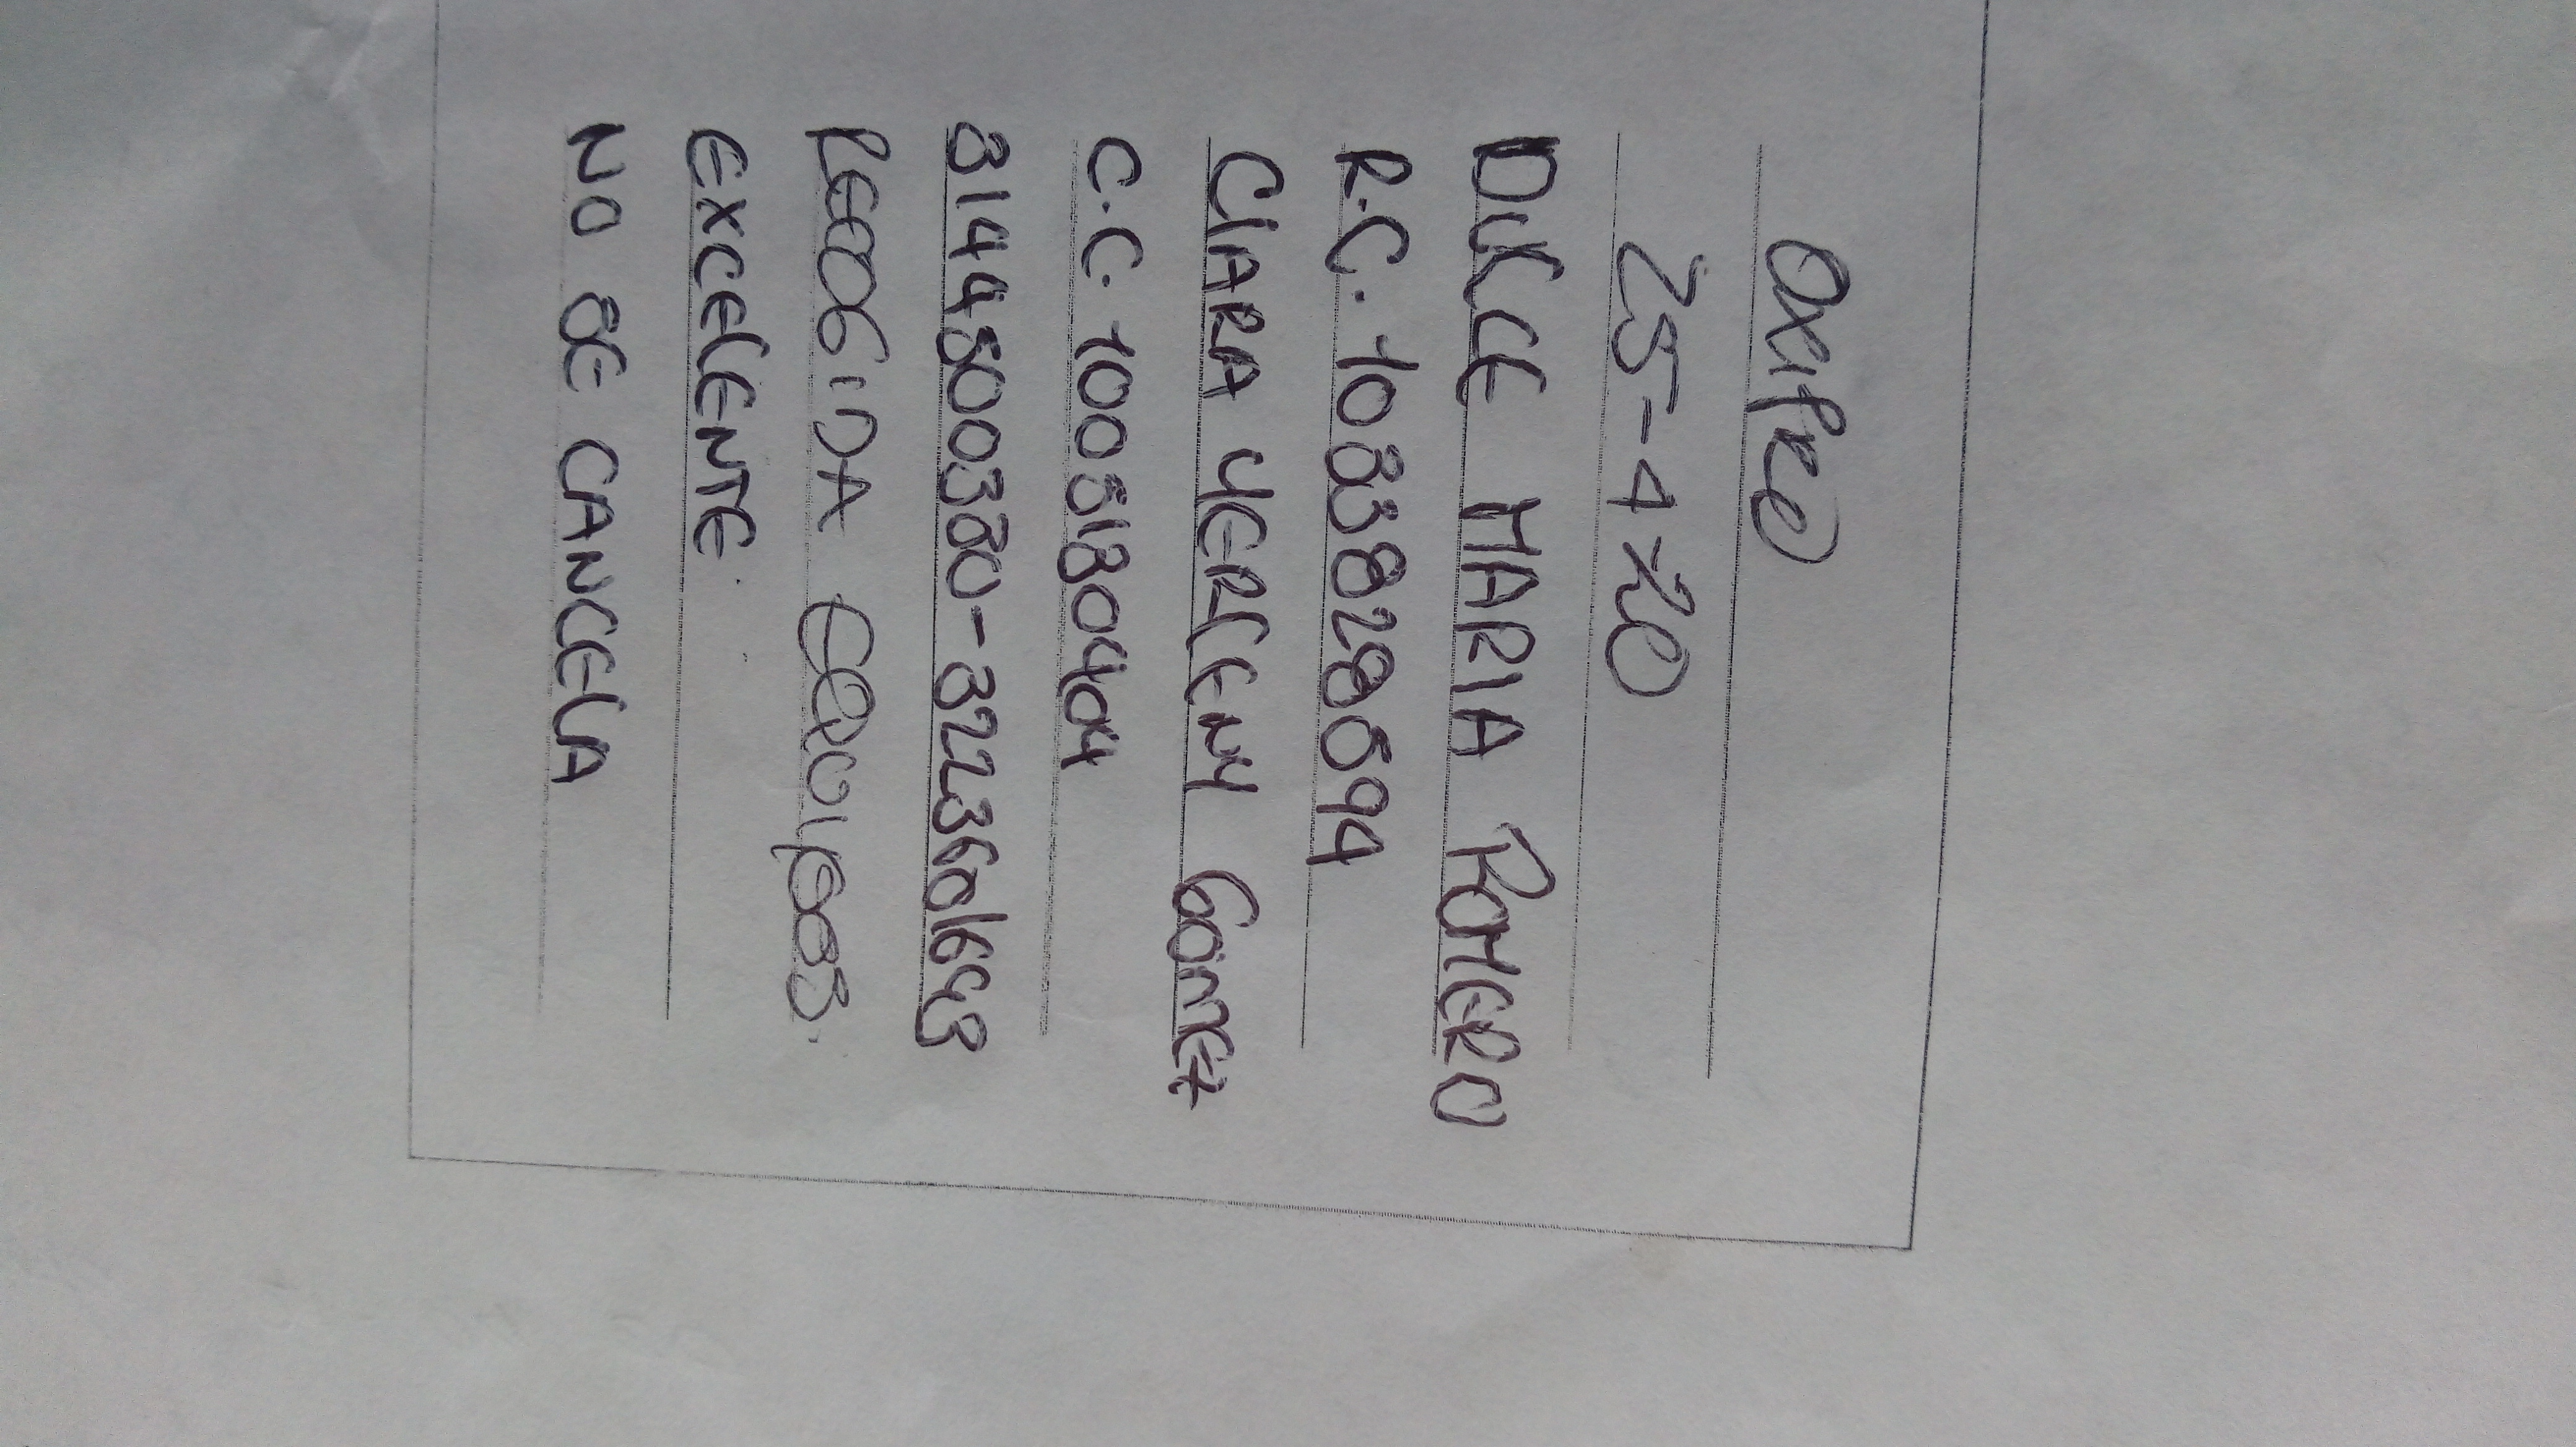 Oxipro
25-4-20
DULCE MARIA ROMERO
R.C. 1033828594
CLARA YERLENY GOMEZ
C.C. 1005180404
3144500380-3223601643
RECOGIDA EQUIPOS.
EXCELENTE.
NO SE CANCELA